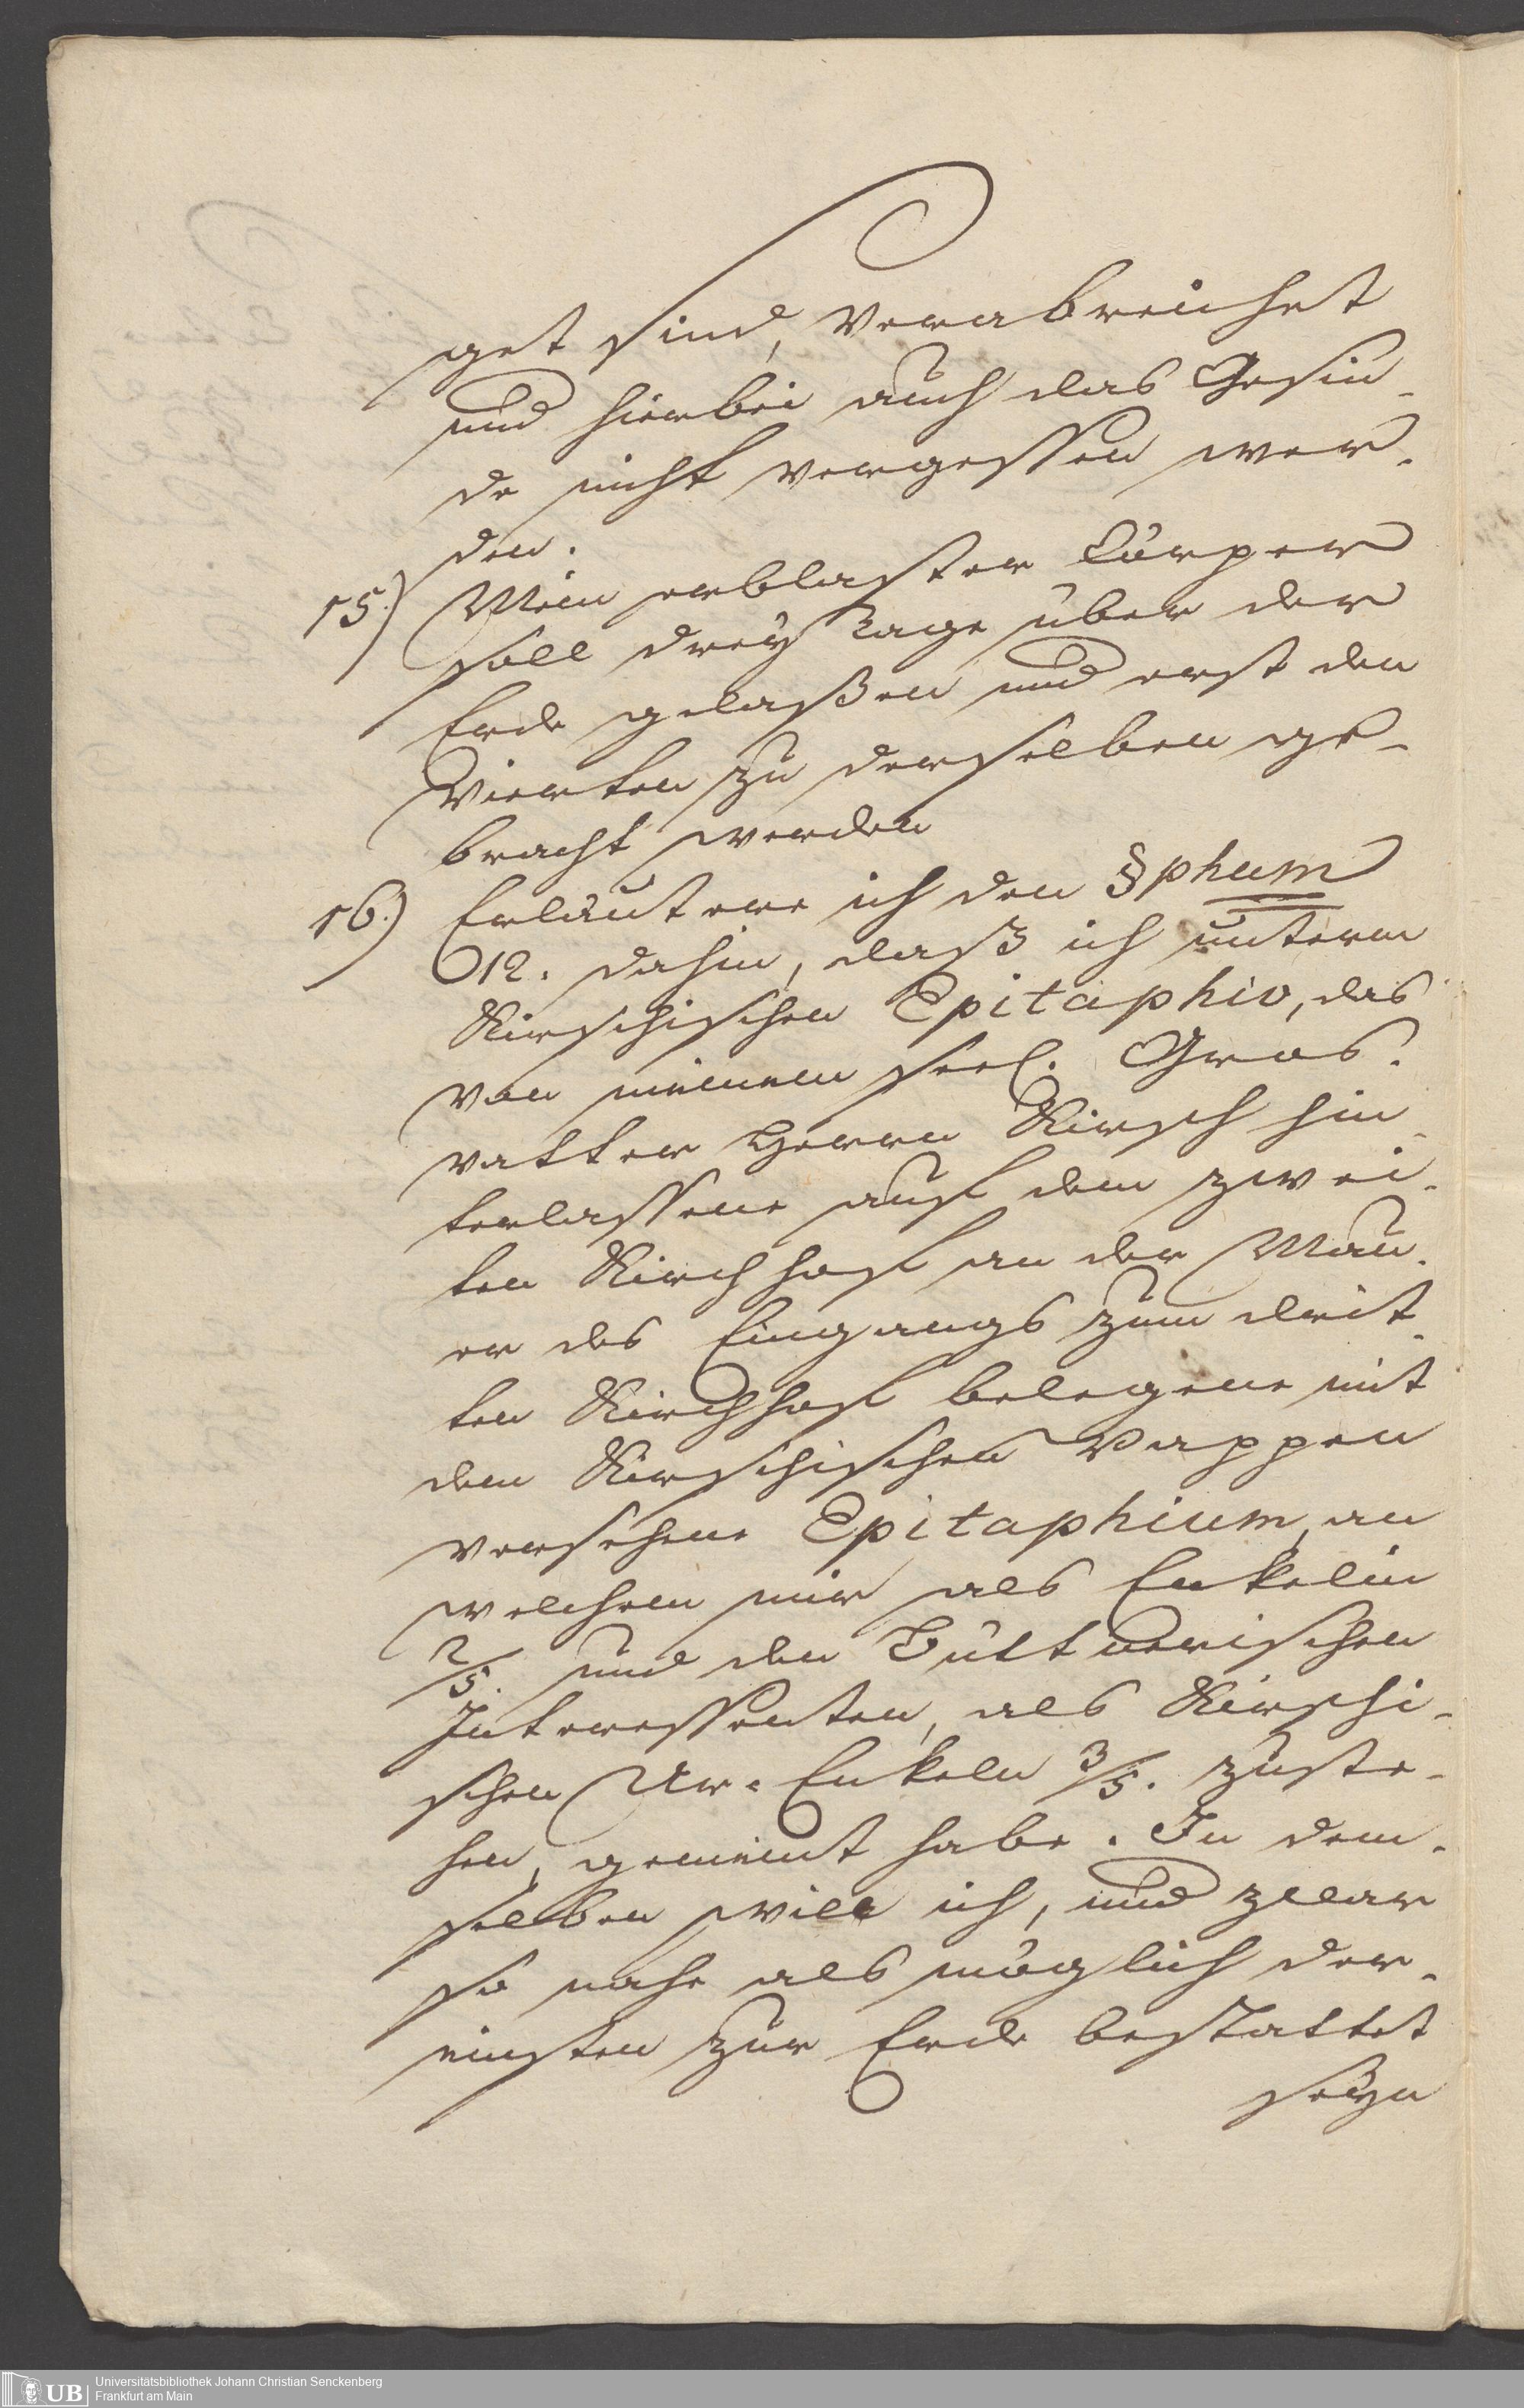 get sind, verabreichet
und hierbei auch das Gesin-
de nicht vergessen wer-
den.
15.) Mein erblaster Cörper
soll drey Tage über der
Erde gelaßen und erst den
Vierten zu derselben ge-
bracht werden
16.) Erläutere ich den §phum
12. dahin, daß ich unterm
Kirschischen Epitaphio, das
von meinem seel. Gros-
vatter Herrn Kirsch hin-
terlassene auf dem zwei-
ten Kirchhof an der Mau-
er des Eingangs zum drit-
ten Kirchhof belegene mit
dem Kirschischen Wappen
versehene Epitaphium, an
welchem mir als Enkelin
2/5. und den Büttnerischen
Interessenten, als Kirschi-
schen Ur-Enkeln 3/5. zuste-
hen, gemeint habe. In dem-
selben will ich, und zwar
so nahe als möglich der-
einsten zur Erde bestattet
seyn
UB Universitätsbibliothek Johann Christian Senckenberg
Frankfurt am Main